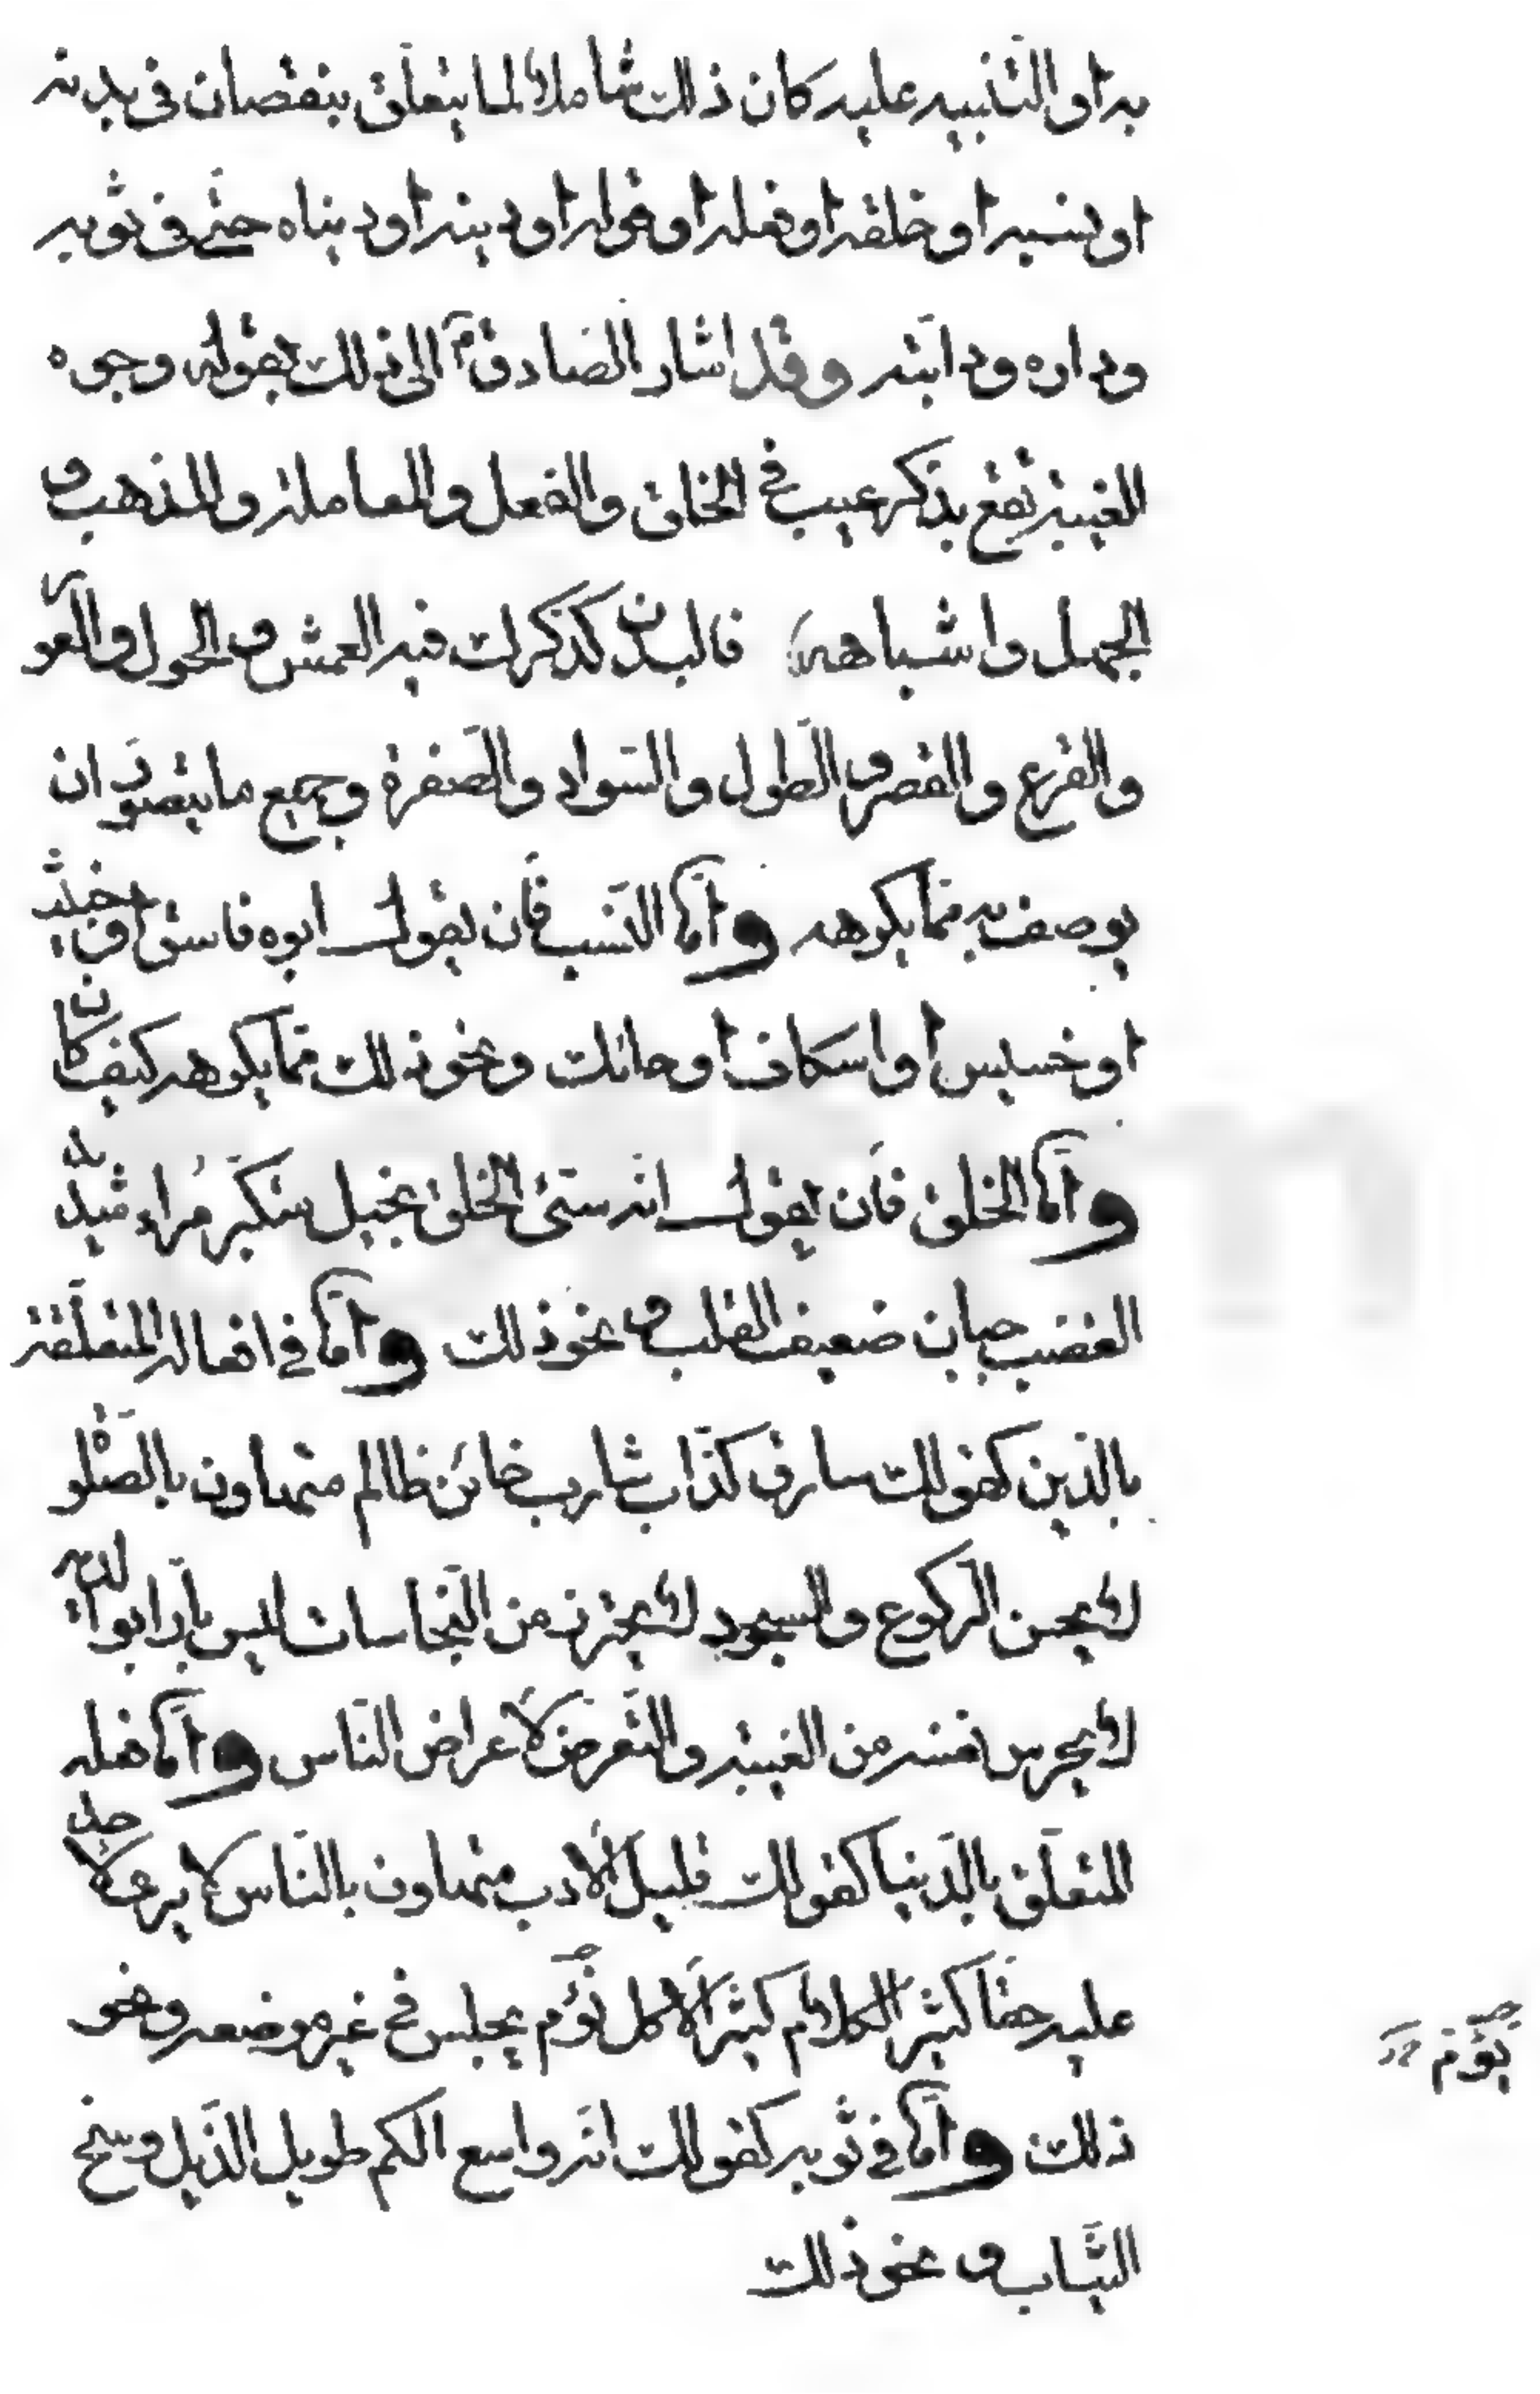 به او التنبيه عليه كان ذلك شاملا لما يتعلق بنقصان في بدنه
او نسبه او خلقه او فعله او قوله او دينه او دنياه حتى في ثوبه
وداره ودابته وقد اشار الصادق ؑ الى ذلك بقوله وجوه
الغيبة تقع بذكر عيب في الخلق والفعل والمعاملة والمذهب و
الجهل واشباهه فالبدن كذكرك فيه العمش و الحول والعور
والقرع والقصر و الطول والسواد والصفرة وجميع ما يتصور ان
يوصف به مما يكرهه وامّا النسب فان يقول ابوه فاسق او خبيث
او خسيس او اسكاف او حائك ونحو ذلك مما يكرهه كيف كان
وامّا الخلق فان يقول انه سيّئ الخلق بخيل متكبّر مُراء شديد
الغضب جبان ضعيف القلب و نحو ذلك وامّا في افعاله المتعلّقة
بالدّين كقولك سارق كذّاب شارب خائن ظالم متهاون بالصّلوة
لا يحسن الركوع والسجود لا يحترز من النّجاسات ليس بارّا بوالديه
لا يحرس نفسه من الغيبة والتعرّض لاعراض النّاس وامّا فعله
المتعلّق بالدّنيا كقولك قليل الادب متهاون بالنّاس لا يرى لاحد
عليه حقّا كثير الكلام كثير الاكل نؤم يجلس في غير موضعه ونحو
ذلك وامّا في ثوبه كقولك انّه واسع الكم طويل الذّيل وسخ
الثّياب و نحو ذلك
نؤم